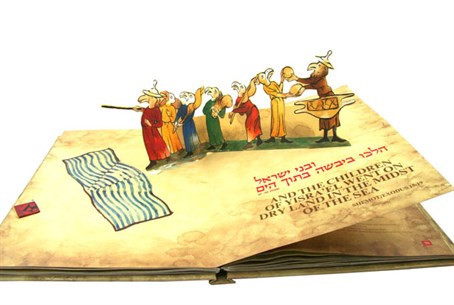 ובני ישראל
הלכו ביבשה בתוך הים
AND THE CHILDREN
OF ISRAEL WENT ON
DRY LAND IN THE MIDST
OF THE SEA